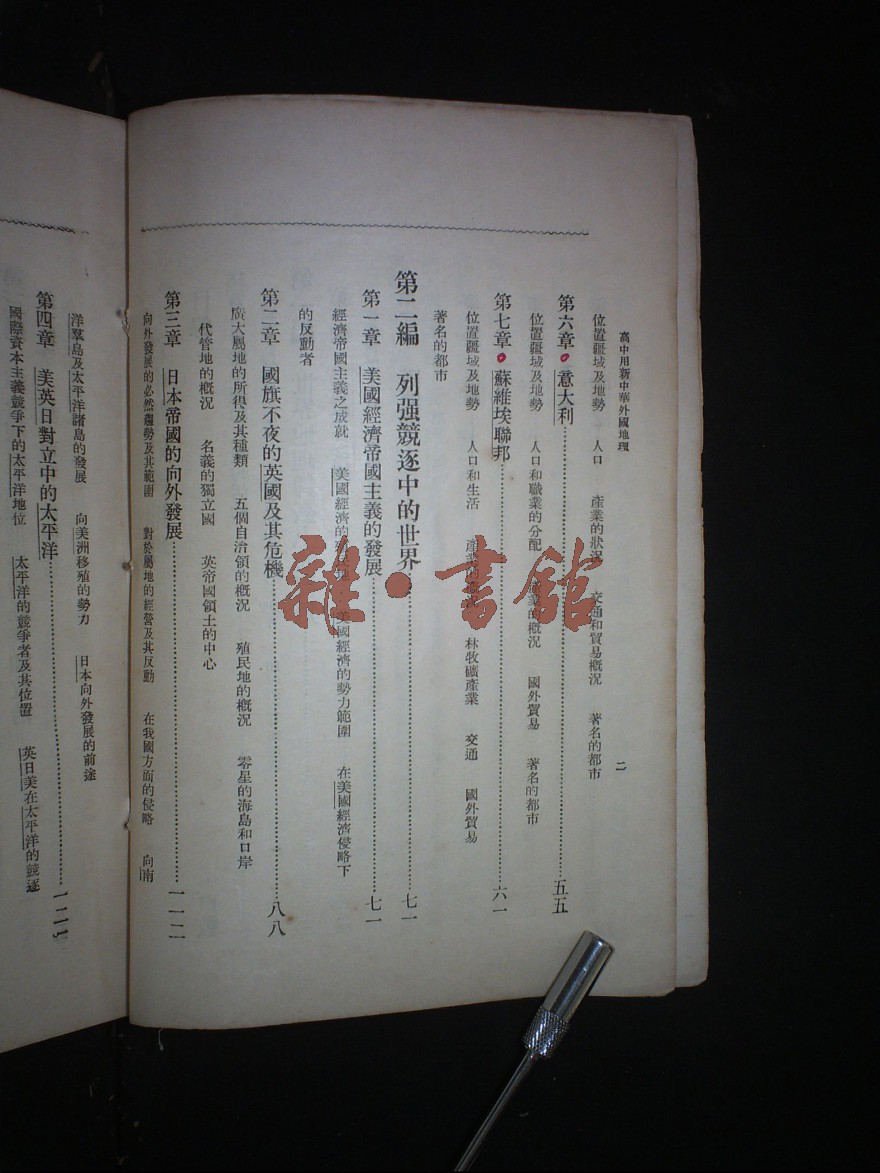 高中用新中華外國地理 二
位置疆域及地勢 人口 產業的狀況 交通和貿易概況 著名的都市
第六章 意大利……五五
位置疆域及地勢 人口和職業的分配 產業的概況 國外貿易 著名的都市
第七章 蘇維埃聯邦……六一
位置疆域及地勢 人口和生活 林牧礦產業 交通 國外貿易
著名的都市
第二編 列强競逐中的世界……七一
第一章 美國經濟帝國主義的發展……七一
經濟帝國主義之成就 美國經濟的 美國經濟的勢力範圍 在美國經濟侵略下
的反動者
第二章 國旗不夜的英國及其危機……八八
廣大屬地的所得及其種類 五個自治領的概況 殖民地的概況 零星的海島和口岸
代管地的概況 名義的獨立國 英帝國領土的中心
第三章 日本帝國的向外發展……一一二
向外發展的必然趨勢及其範圍 對於屬地的經營及其反動 在我國方面的侵略 向南
洋羣島及太平洋諸島的發展 向美洲移殖的勢力 日本向外發展的前途
第四章 美英日對立中的太平洋……
國際資本主義競爭下的太平洋地位 太平洋的競爭者及其位置 英日美在太平洋的競逐
雜·書館